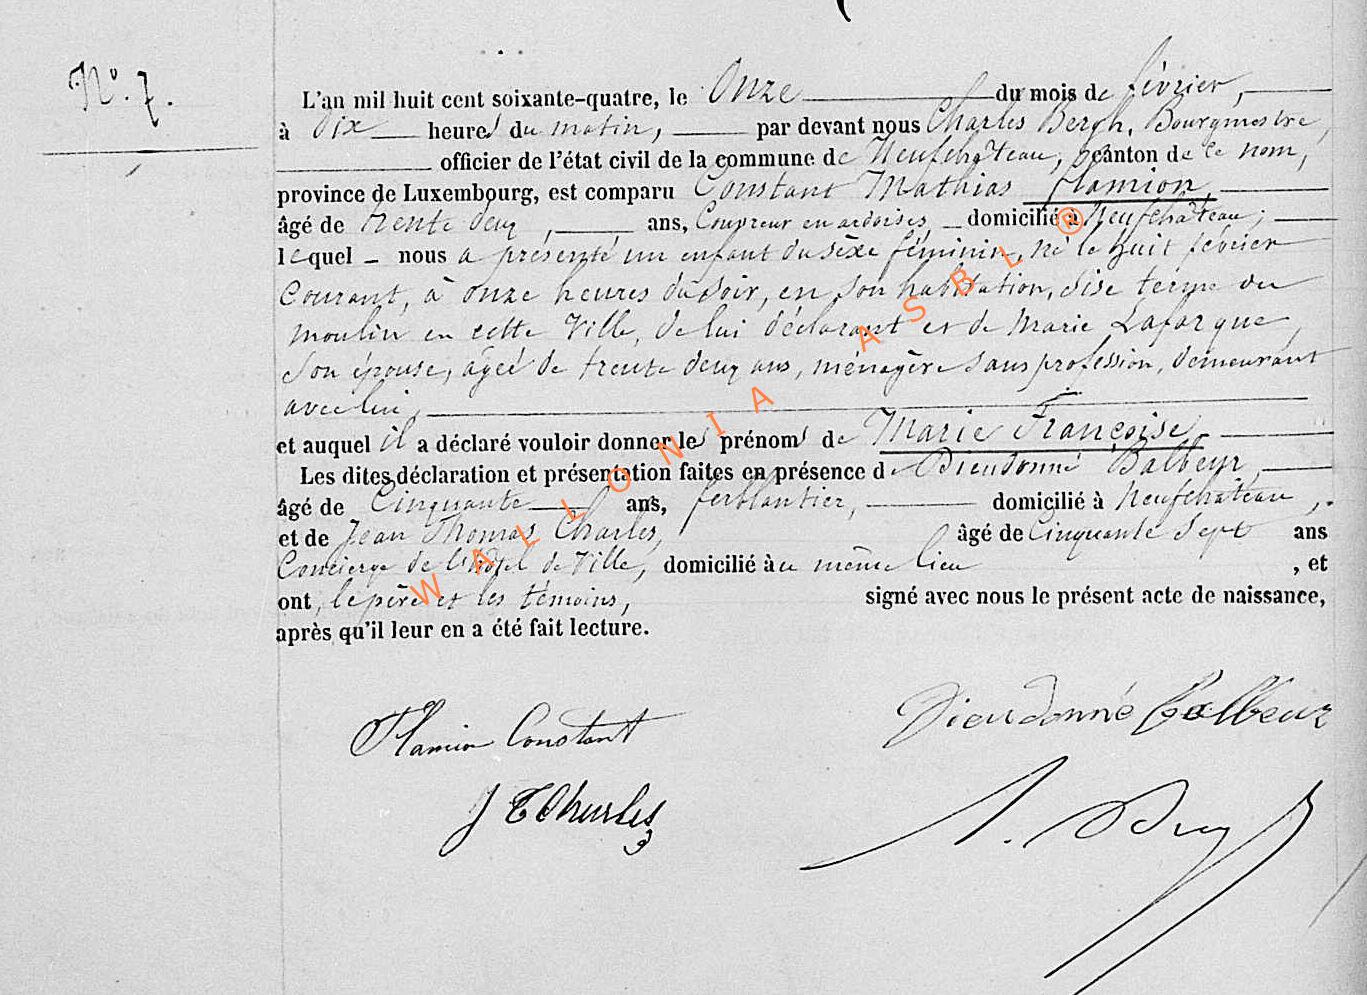 N° 7.
L'an mil huit cent soixante-quatre, le Onze du mois de février,
à Dix heures du matin, par devant nous Charles Bergh, Bourgmestre,
officier de l'état civil de la commune de Neufchâteau, canton de ce nom,
province de Luxembourg, est comparu Constant Mathias Flamion,
âgé de trente deux, ans, Coupreur en ardoises, domicilié à Neufchâteau;
lequel nous a présenté un enfant du sèxe féminin, né le huit février
Courant, à onze heures du soir, en son habitation, sise terme du
moulin en cette Ville, de lui déclarant et de Marie Lafarque
son épouse, âgée de trente deux ans, ménagère sans profession, demeurant
avec lui,
et auquel il a déclaré vouloir donner les prénoms de Marie Françoise
Les dites déclaration et présentation faites en présence de Dieudonné Balbeur,
âgé de Cinquante ans, ferblantier, domicilié à Neufchâteau,
et de Jean Thomas Charles, âgé de Cinquante Sept ans
Concierge de l'hôtel de Ville, domicilié au même lieu, et
ont, le père et les témoins, signé avec nous le présent acte de naissance,
après qu'il leur en a été fait lecture.
WALLONIA ASBL ®
Flamion Constant
Dieudonné Balbeur
J T Charles